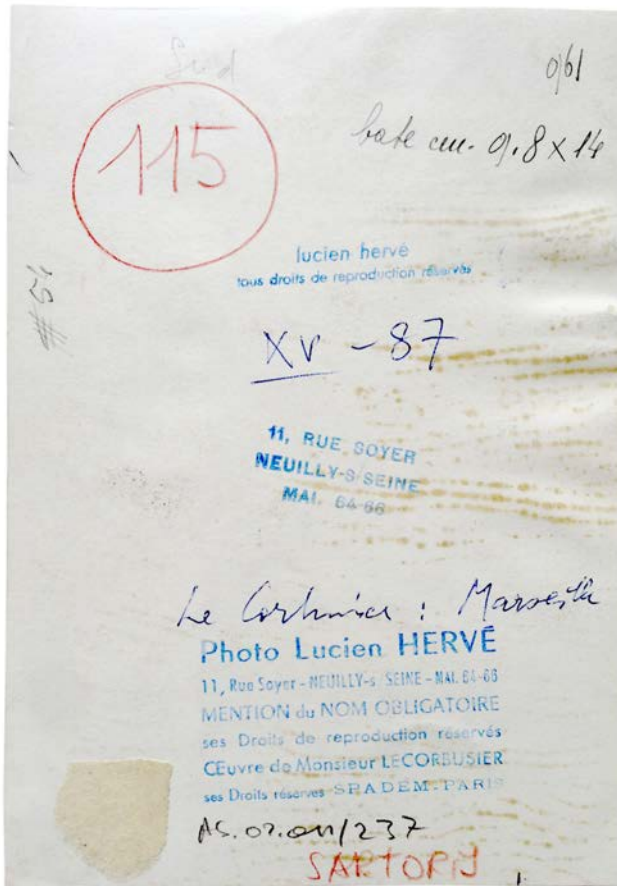 061
115
base cm. 9.8 x 14
lucien hervé
tous droits de reproduction réservés
XV - 87
11, RUE SOYER
NEUILLY-S/SEINE
MAI. 64-66
Le Corbusier : Marseille
Photo Lucien HERVÉ
11, Rue Soyer - NEUILLY-s/SEINE - MAI. 64-66
MENTION du NOM OBLIGATOIRE
ses Droits de reproduction réservés
Œuvre de Monsieur LECORBUSIER
ses Droits réservés SPADEM-PARIS
AS.02.011/237
SARTORIS